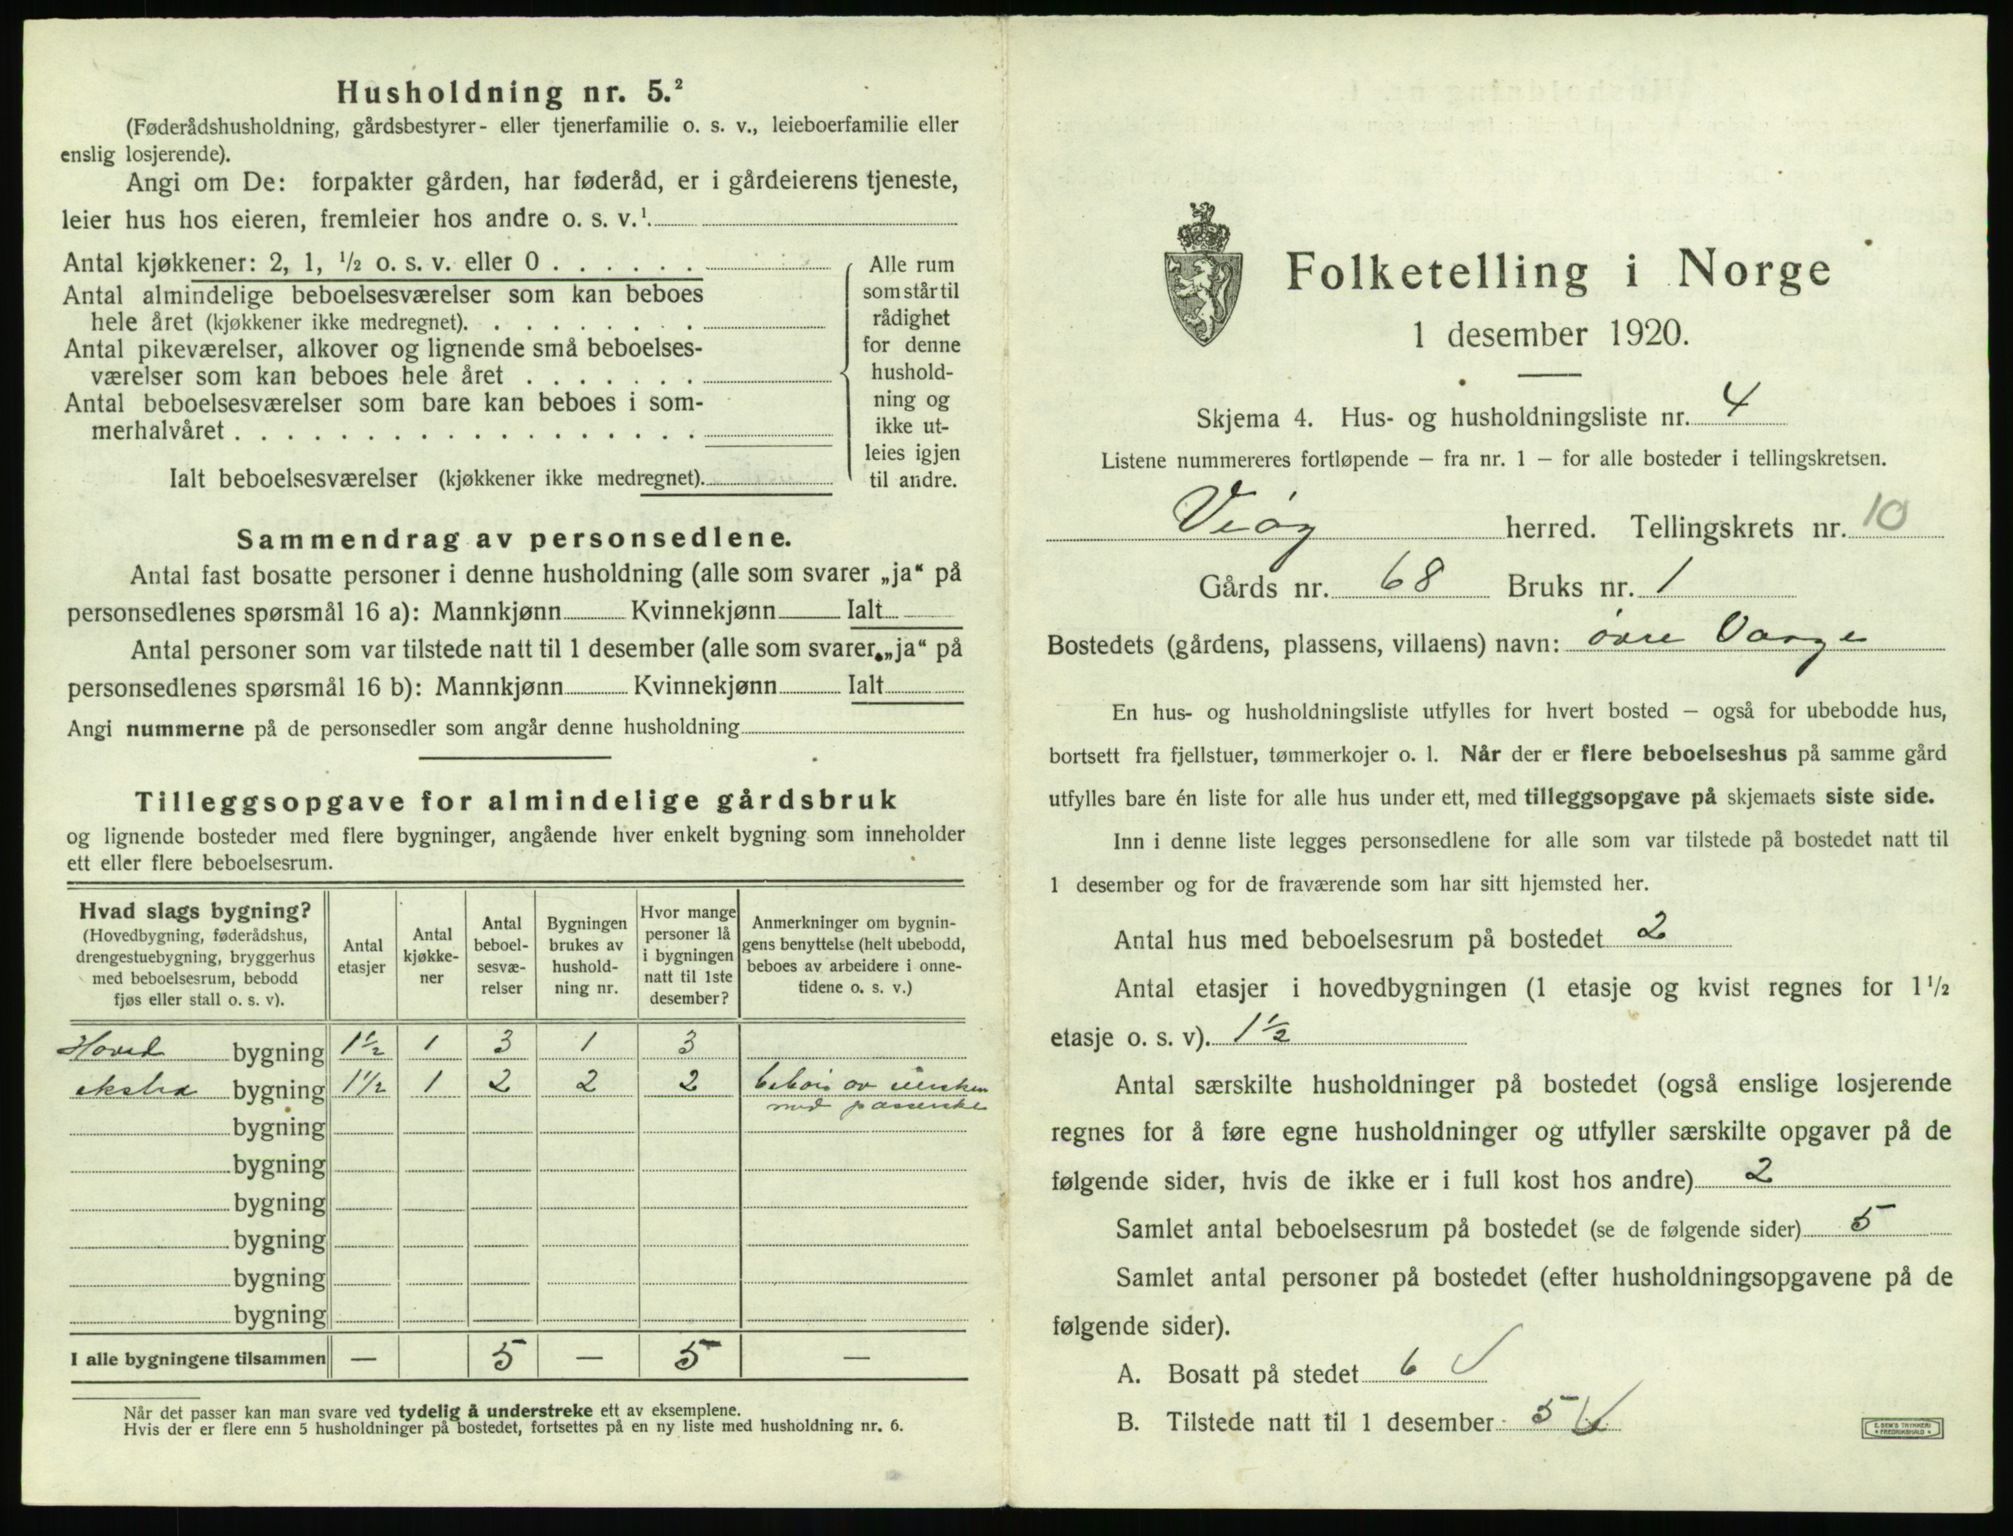 Husholdning nr. 5.²
(Føderådshusholdning, gårdsbestyrer- eller tjenerfamilie o. s. v., leieboerfamilie eller
enslig losjerende).
Angi om De: forpakter gården, har føderåd, er i gårdeierens tjeneste,
leier hus hos eieren, fremleier hos andre o. s. v.¹
Antal kjøkkener: 2, 1, ½ o. s. v. eller 0 . . . . . .
Antal almindelige beboelsesværelser som kan beboes
hele året (kjøkkener ikke medregnet). . . . . . . . .
Antal pikeværelser, alkover og lignende små beboelses-
værelser som kan beboes hele året . . . . . . .
Antal beboelsesværelser som bare kan beboes i som-
merhalvåret . . . . . . . . . . . . . . . . . .
Ialt beboelsesværelser (kjøkkener ikke medregnet).
Alle rum
som står til
rådighet
for denne
hushold-
ning og
ikke ut-
leies igjen
til andre.
Sammendrag av personsedlene.
Antal fast bosatte personer i denne husholdning (alle som svarer „ja“ på
personsedlenes spørsmål 16 a): Mannkjønn Kvinnekjønn Ialt
Antal personer som var tilstede natt til 1 desember (alle som svarer „ja“ på
personsedlenes spørsmål 16 b): Mannkjønn Kvinnekjønn Ialt
Angi nummerne på de personsedler som angår denne husholdning
Tilleggsopgave for almindelige gårdsbruk
og lignende bosteder med flere bygninger, angående hver enkelt bygning som inneholder
ett eller flere beboelsesrum.
Hvad slags bygning?
(Hovedbygning, føderådshus,
drengestuebygning, bryggerhus
med beboelsesrum, bebodd
fjøs eller stall o. s. v).
Antal
etasjer
Antal
kjøkke-
ner
Antal
beboel-
sesvæ-
relser
Bygningen
brukes av
hushold-
ning nr.
Hvor mange
personer lå
i bygningen
natt til 1ste
desember?
Anmerkninger om bygnin-
gens benyttelse (helt ubebodd,
beboes av arbeidere i onne-
tidene o. s. v.)
Hoved bygning 1½ 1 3 1 3
ekstra bygning 1½ 1 2 2 2
med
bygning
bygning
bygning
bygning
bygning
bygning
I alle bygningene tilsammen — 5 — 5 —
Når det passer kan man svare ved tydelig å understreke ett av eksemplene.
Hvis der er flere enn 5 husholdninger på bostedet, fortsettes på en ny liste med husholdning nr. 6.
Folketelling i Norge
1 desember 1920.
Skjema 4. Hus- og husholdningsliste nr. 4
Listene nummereres fortløpende — fra nr. 1 — for alle bosteder i tellingskretsen.
Veøy herred. Tellingskrets nr. 10
Gårds nr. 68 Bruks nr. 1
Bostedets (gårdens, plassens, villaens) navn: øvre Varge
En hus- og husholdningsliste utfylles for hvert bosted — også for ubebodde hus,
bortsett fra fjellstuer, tømmerkojer o. l. Når der er flere beboelseshus på samme gård
utfylles bare én liste for alle hus under ett, med tilleggsopgave på skjemaets siste side.
Inn i denne liste legges personsedlene for alle som var tilstede på bostedet natt til
1 desember og for de fraværende som har sitt hjemsted her.
Antal hus med beboelsesrum på bostedet 2
Antal etasjer i hovedbygningen (1 etasje og kvist regnes for 1½
etasje o. s. v). 1½
Antal særskilte husholdninger på bostedet (også enslige losjerende
regnes for å føre egne husholdninger og utfyller særskilte opgaver på de
følgende sider, hvis de ikke er i full kost hos andre) 2
Samlet antal beboelsesrum på bostedet (se de følgende sider) 5
Samlet antal personer på bostedet (efter husholdningsopgavene på de
følgende sider).
A. Bosatt på stedet 6
B. Tilstede natt til 1 desember 5
E. SEM'S TRYKKERI
FREDRIKSHALD